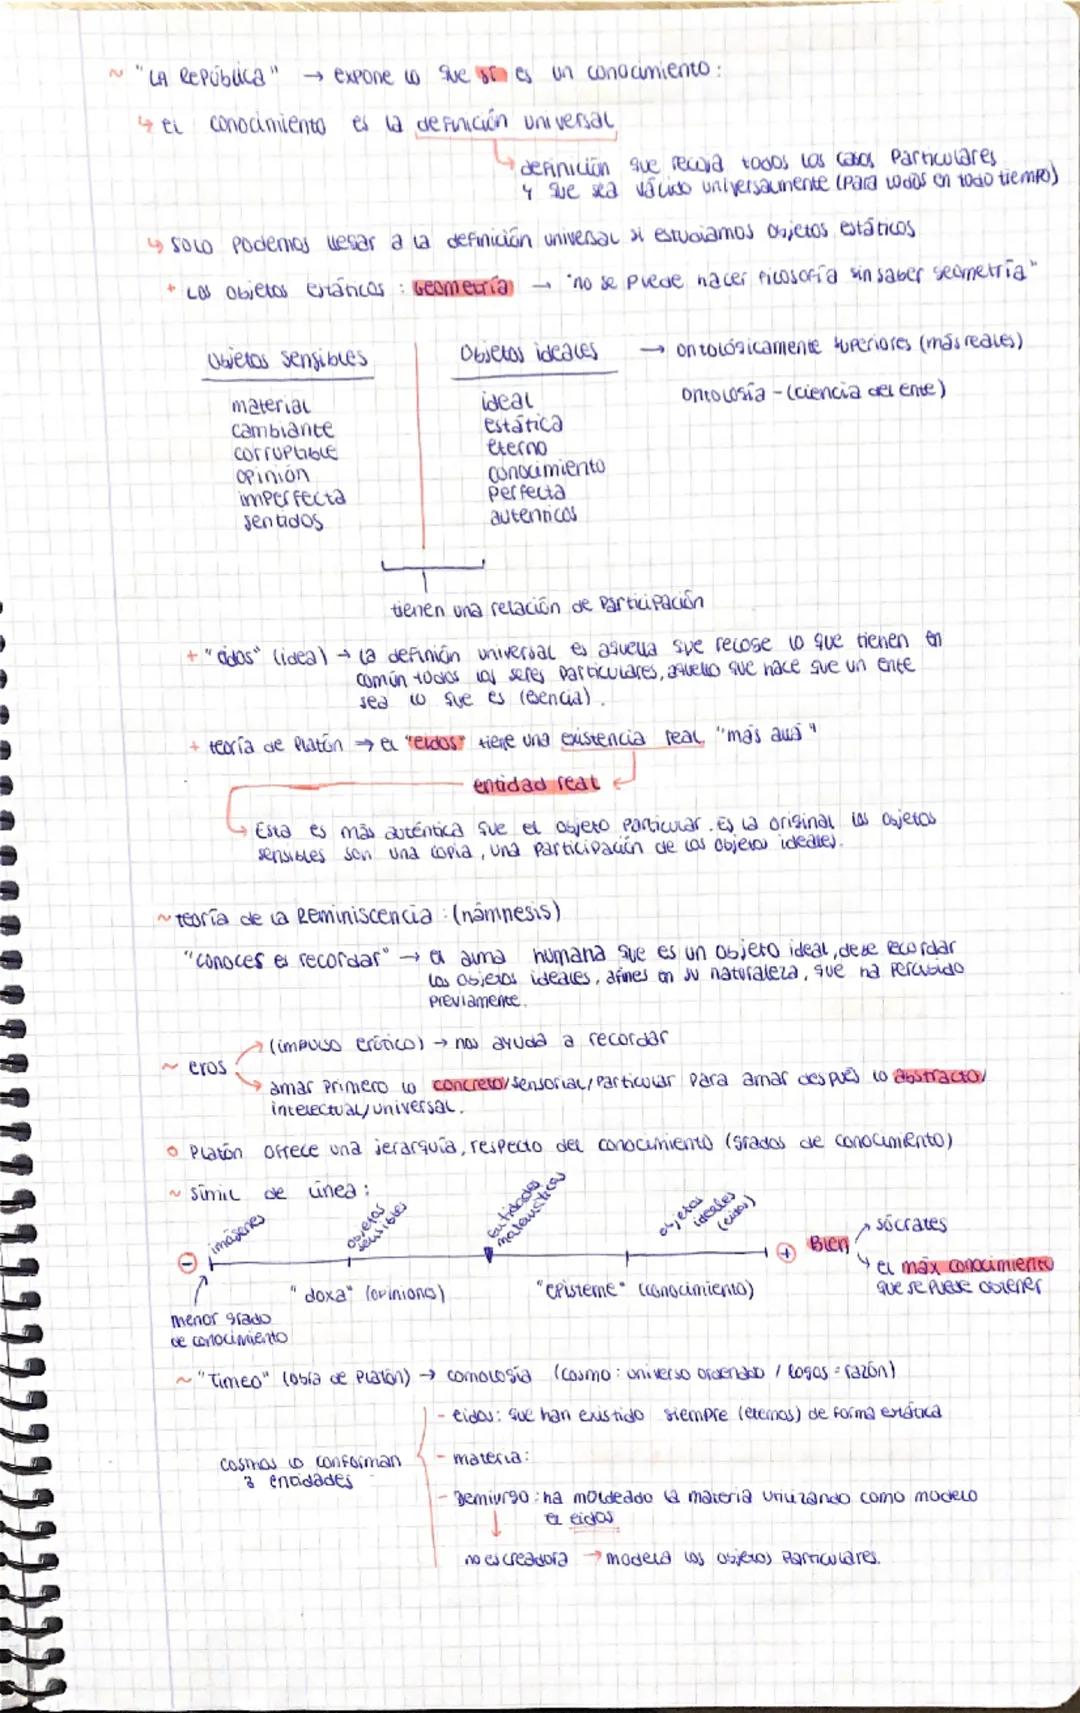 ~ "LA REPÚBLICA" → expone lo que sí es un conocimiento:
↳ el conocimiento es la definición universal
↳ definición que recoja todos los casos particulares
y que sea válido universalmente (para todos en todo tiempo)
↳ solo podemos llegar a la definición universal si estudiamos objetos estáticos
+ Los objetos estáticos: Geometría → "no se puede hacer filosofía sin saber geometría"
Objetos sensibles
Objetos ideales → ontológicamente superiores (más reales)
ontología - (ciencia del ente)
material
cambiante
corruptible
opinión
imperfecta
sentidos
ideal
estática
eterno
conocimiento
perfecta
autenticos
tienen una relación de participación
+ "eidos" (idea) → la definión universal es aquella que recoge lo que tienen en
común todos los seres particulares, aquello que hace que un ente
sea lo que es (esencia).
+ teoría de Platón → el "eidos" tiene una existencia real "más allá"
entidad real
↳ Esta es más auténtica que el objeto particular. Es la original los objetos
sensibles son una copia, una participación de los objetos ideales.
~ teoría de la Reminiscencia: (námnesis)
"conoces es recordar" → el alma humana que es un objeto ideal, debe recordar
los objetos ideales, afines en su naturaleza, que ha percibido
previamente.
~ eros
→ (impulso erótico) → nos ayuda a recordar
→ amar primero lo concreto/sensorial/particular para amar después lo abstracto/
intelectual/universal.
o Platón ofrece una jerarquía, respecto del conocimiento (grados de conocimiento)
~ símil de línea:
imágenes
objetos sensibles
Entidades matemáticas
objetos ideales (eidos)
⊖
⊕ Bien
→ sócrates
↘ el máx conocimiento
que se puede obtener
"doxa" (opiniones)
"episteme" (conocimiento)
menor grado
de conocimiento
~ "Timeo" (obra de Platón) → comología (cosmo: universo ordenado / logos = razón)
cosmos lo conforman
3 entidades
- eidos: que han existido siempre (eternos) de forma estática
- materia:
- Demiurgo: ha moldeado la materia utilizando como modelo
el eidos
no es creadora → modela los objetos particulares.